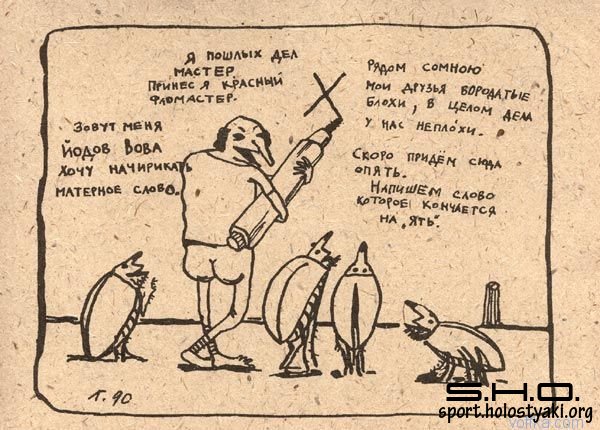 Я ПОШЛЫХ ДЕЛ
МАСТЕР
ПРИНЕС Я КРАСНЫЙ
ФЛОМАСТЕР.
ЗОВУТ МЕНЯ
ЙОДОВ ВОВА
ХОЧУ НАЧИРИКАТЬ
МАТЕРНОЕ СЛОВО.
Х
РЯДОМ СОМНОЮ
МОИ ДРУЗЬЯ БОРОДАТЫЕ
БЛОХИ, В ЦЕЛОМ ДЕЛА
У НАС НЕПЛОХИ.
СКОРО ПРИДЁМ СЮДА
ОПЯТЬ.
НАПИШЕМ СЛОВО
КОТОРОЕ КОНЧАЕТСЯ
НА „ЯТЬ".
Г. 90
S.H.O.
sport.holostyaki.org